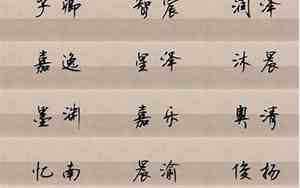 子卿 智宸 润泽
嘉逸 星泽 沐晨
墨渊 嘉乐 奥清
忆南 晨渝 俊杨